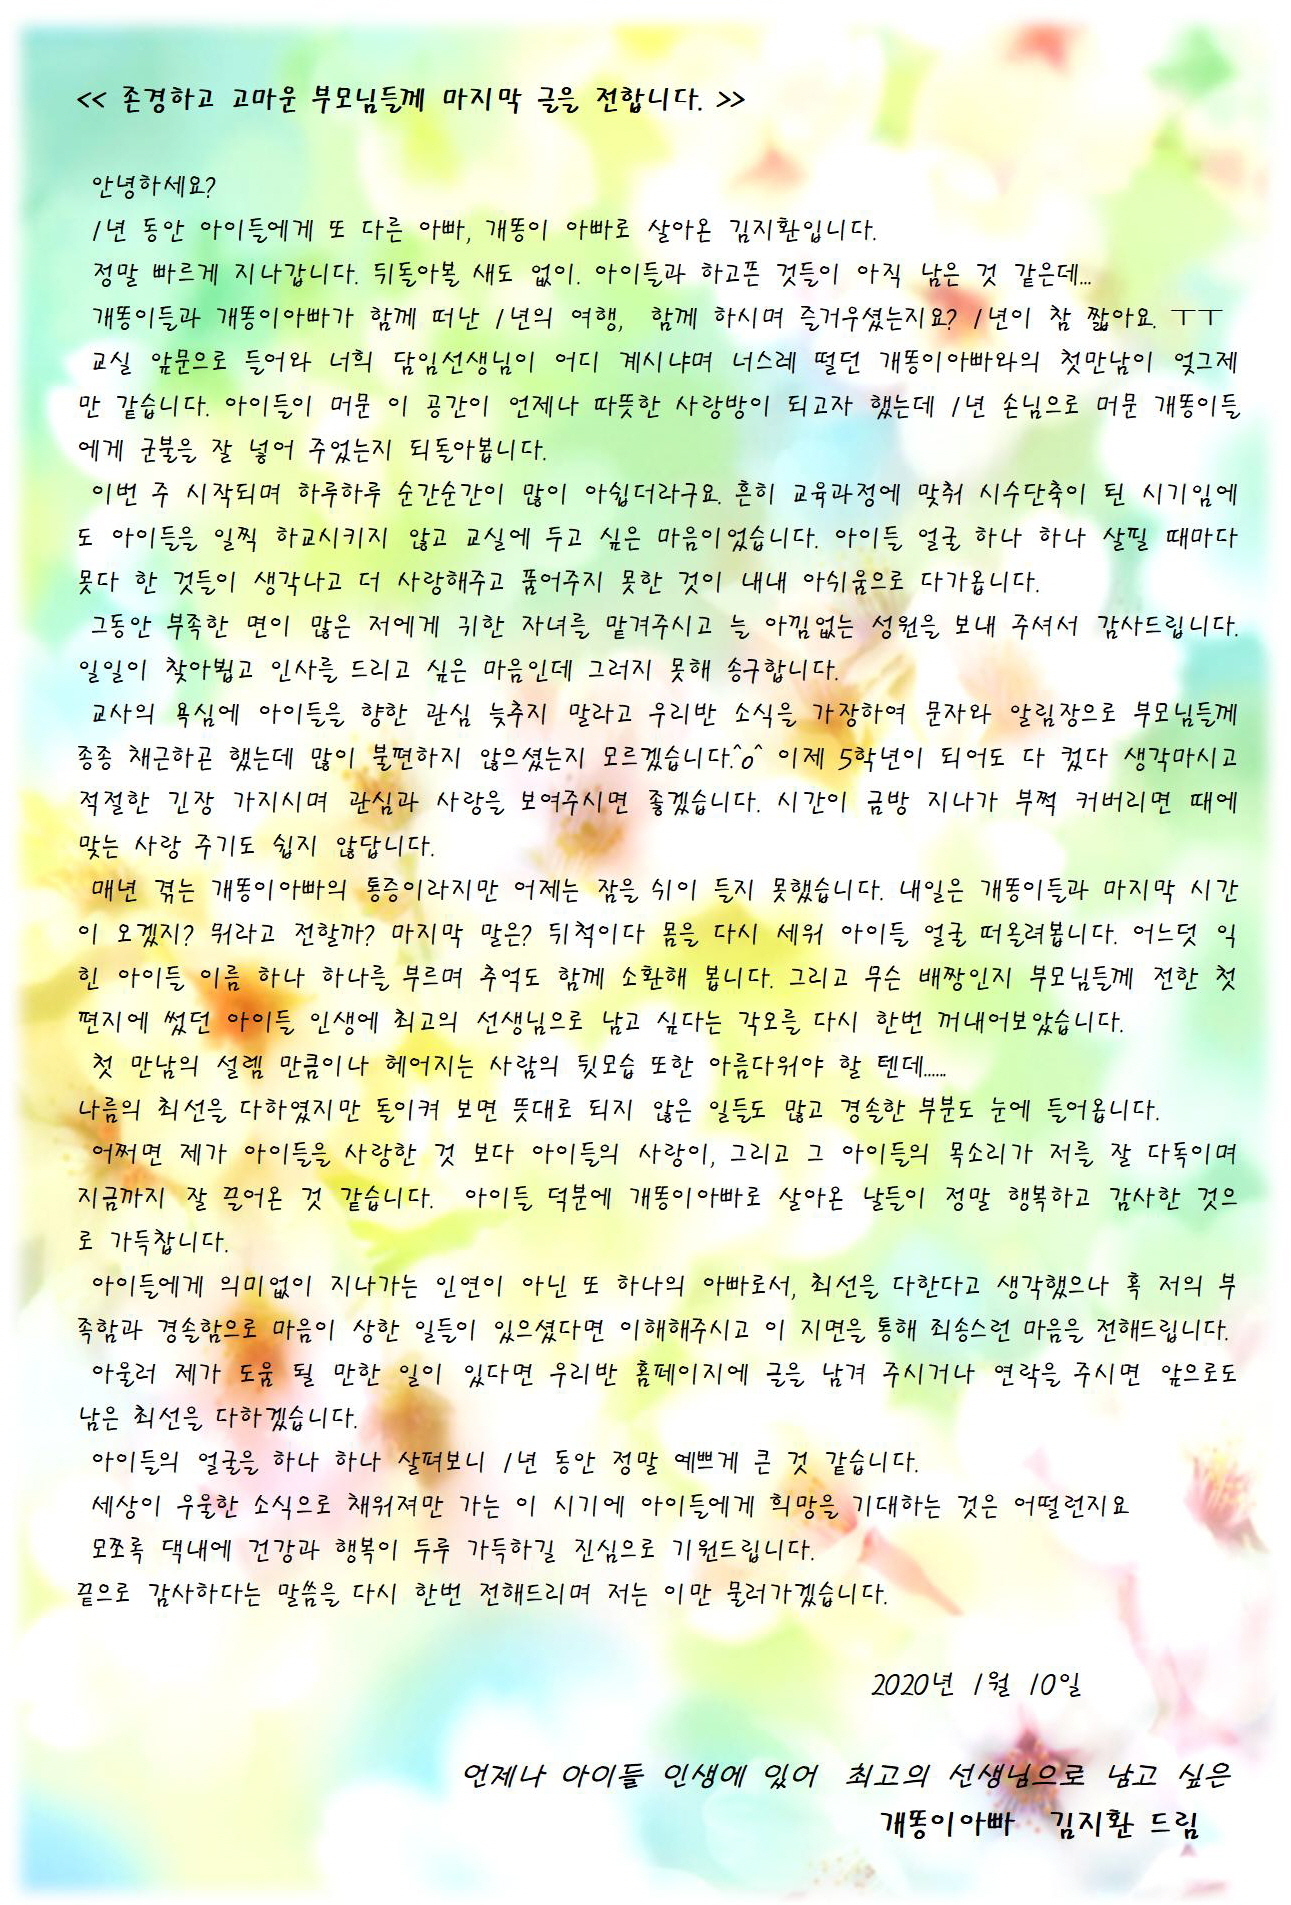 << 존경하고 고마운 부모님들께 마지막 글을 전합니다. >>
안녕하세요?
1년 동안 아이들에게 또 다른 아빠, 개똥이 아빠로 살아온 김지환입니다.
정말 빠르게 지나갑니다. 뒤돌아볼 새도 없이. 아이들과 하고픈 것들이 아직 남은 것 같은데...
개똥이들과 개똥이아빠가 함께 떠난 1년의 여행, 함께 하시며 즐거우셨는지요? 1년이 참 짧아요. ㅜㅜ
교실 앞문으로 들어와 너희 담임선생님이 어디 계시냐며 너스레 떨던 개똥이아빠와의 첫만남이 엊그제
만 같습니다. 아이들이 머문 이 공간이 언제나 따뜻한 사랑방이 되고자 했는데 1년 손님으로 머문 개똥이들
에게 군불을 잘 넣어 주었는지 되돌아봅니다.
이번 주 시작되며 하루하루 순간순간이 많이 아쉽더라구요. 흔히 교육과정에 맞춰 시수단축이 된 시기임에
도 아이들을 일찍 하교시키지 않고 교실에 두고 싶은 마음이었습니다. 아이들 얼굴 하나 하나 살필 때마다
못다 한 것들이 생각나고 더 사랑해주고 품어주지 못한 것이 내내 아쉬움으로 다가옵니다.
그동안 부족한 면이 많은 저에게 귀한 자녀를 맡겨주시고 늘 아낌없는 성원을 보내 주셔서 감사드립니다.
일일이 찾아뵙고 인사를 드리고 싶은 마음인데 그러지 못해 송구합니다.
교사의 욕심에 아이들을 향한 관심 늦추지 말라고 우리반 소식을 가장하여 문자와 알림장으로 부모님들께
종종 채근하곤 했는데 많이 불편하지 않으셨는지 모르겠습니다.^o^ 이제 5학년이 되어도 다 컸다 생각마시고
적절한 긴장 가지시며 관심과 사랑을 보여주시면 좋겠습니다. 시간이 금방 지나가 부쩍 커버리면 때에
맞는 사랑 주기도 쉽지 않답니다.
매년 겪는 개똥이아빠의 통증이라지만 어제는 잠을 쉬이 들지 못했습니다. 내일은 개똥이들과 마지막 시간
이 오겠지? 뭐라고 전할까? 마지막 말은? 뒤척이다 몸을 다시 세워 아이들 얼굴 떠올려봅니다. 어느덧 익
힌 아이들 이름 하나 하나를 부르며 추억도 함께 소환해 봅니다. 그리고 무슨 배짱인지 부모님들께 전한 첫
편지에 썼던 아이들 인생에 최고의 선생님으로 남고 싶다는 각오를 다시 한번 꺼내어보았습니다.
첫 만남의 설렘 만큼이나 헤어지는 사람의 뒷모습 또한 아름다워야 할 텐데......
나름의 최선을 다하였지만 돌이켜 보면 뜻대로 되지 않은 일들도 많고 경솔한 부분도 눈에 들어옵니다.
어쩌면 제가 아이들을 사랑한 것 보다 아이들의 사랑이, 그리고 그 아이들의 목소리가 저를 잘 다독이며
지금까지 잘 끌어온 것 같습니다. 아이들 덕분에 개똥이아빠로 살아온 날들이 정말 행복하고 감사한 것으
로 가득찹니다.
아이들에게 의미없이 지나가는 인연이 아닌 또 하나의 아빠로서, 최선을 다한다고 생각했으나 혹 저의 부
족함과 경솔함으로 마음이 상한 일들이 있으셨다면 이해해주시고 이 지면을 통해 죄송스런 마음을 전해드립니다.
아울러 제가 도움 될 만한 일이 있다면 우리반 홈페이지에 글을 남겨 주시거나 연락을 주시면 앞으로도
남은 최선을 다하겠습니다.
아이들의 얼굴을 하나 하나 살펴보니 1년 동안 정말 예쁘게 큰 것 같습니다.
세상이 우울한 소식으로 채워져만 가는 이 시기에 아이들에게 희망을 기대하는 것은 어떨런지요
모쪼록 댁내에 건강과 행복이 두루 가득하길 진심으로 기원드립니다.
끝으로 감사하다는 말씀을 다시 한번 전해드리며 저는 이만 물러가겠습니다.
2020년 1월 10일
언제나 아이들 인생에 있어 최고의 선생님으로 남고 싶은
개똥이아빠 김지환 드림